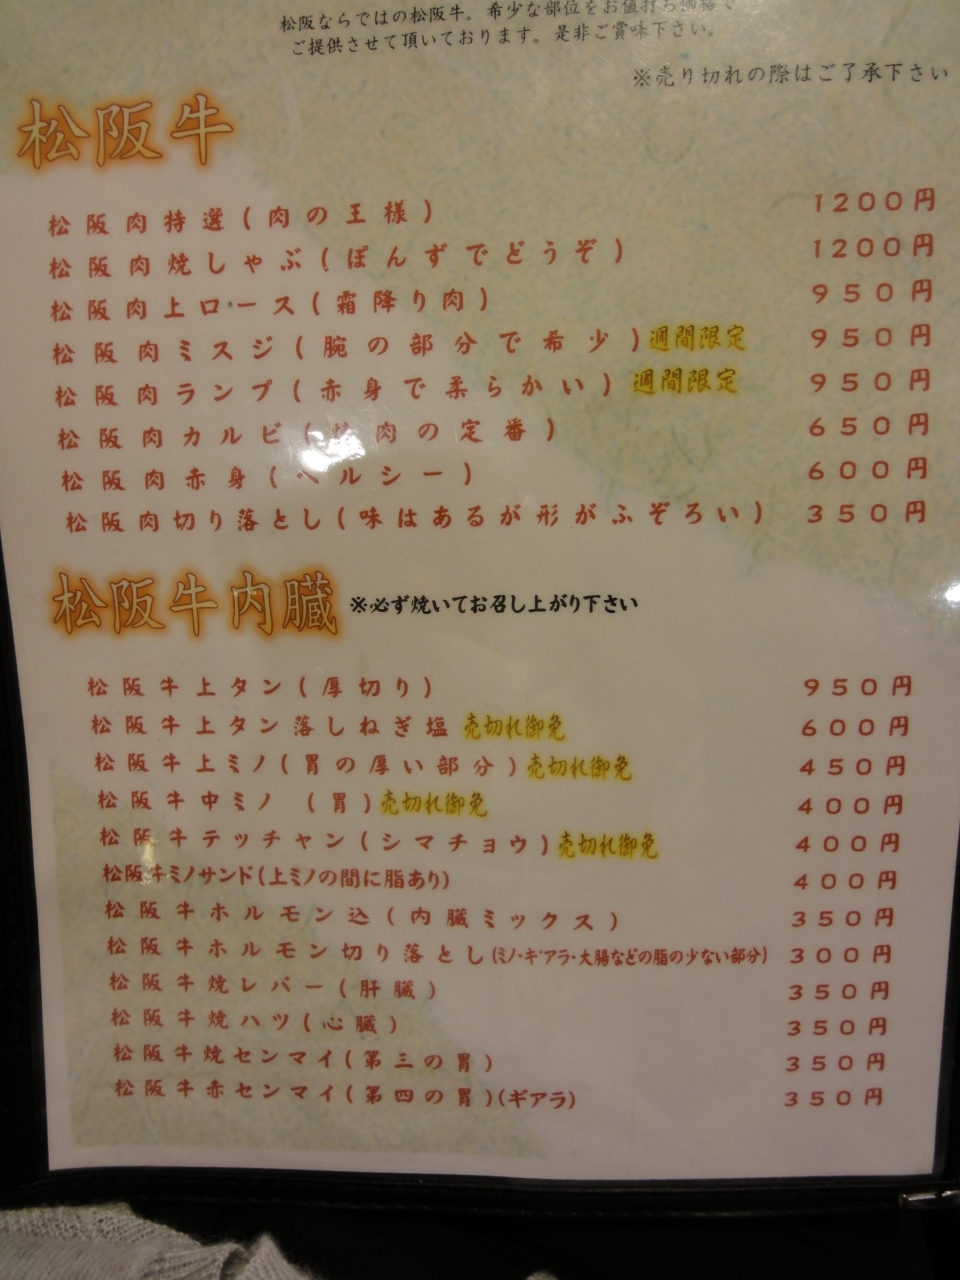 松阪ならではの松阪牛。希少な部位をお値打ち価格で
ご提供させて頂いております。是非ご賞味下さい。
※売り切れの際はご了承下さい
松阪牛
松阪肉特選(肉の王様) 1200円
松阪肉焼しゃぶ(ぽんずでどうぞ) 1200円
松阪肉上ロース(霜降り肉) 950円
松阪肉ミスジ(腕の部分で希少)週間限定 950円
松阪肉ランプ(赤身で柔らかい) 週間限定 950円
松阪肉カルビ(焼肉の定番) 650円
松阪肉赤身(ヘルシー) 600円
松阪肉切り落とし(味はあるが形がふぞろい) 350円
松阪牛内臓 ※必ず焼いてお召し上がり下さい
松阪牛上タン(厚切り) 950円
松阪牛上タン落しねぎ塩 売切れ御免 600円
松阪牛上ミノ(胃の厚い部分)売切れ御免 450円
松阪牛中ミノ (胃)売切れ御免 400円
松阪牛テッチャン(シマチョウ)売切れ御免 400円
松阪牛ミノサンド(上ミノの間に脂あり) 400円
松阪牛ホルモン込(内臓ミックス) 350円
松阪牛ホルモン切り落とし(ミノ・ギアラ・大腸などの脂の少ない部分) 300円
松阪牛焼レバー(肝臓) 350円
松阪牛焼ハツ(心臓) 350円
松阪牛焼センマイ(第三の胃) 350円
松阪牛赤センマイ(第四の胃)(ギアラ) 350円